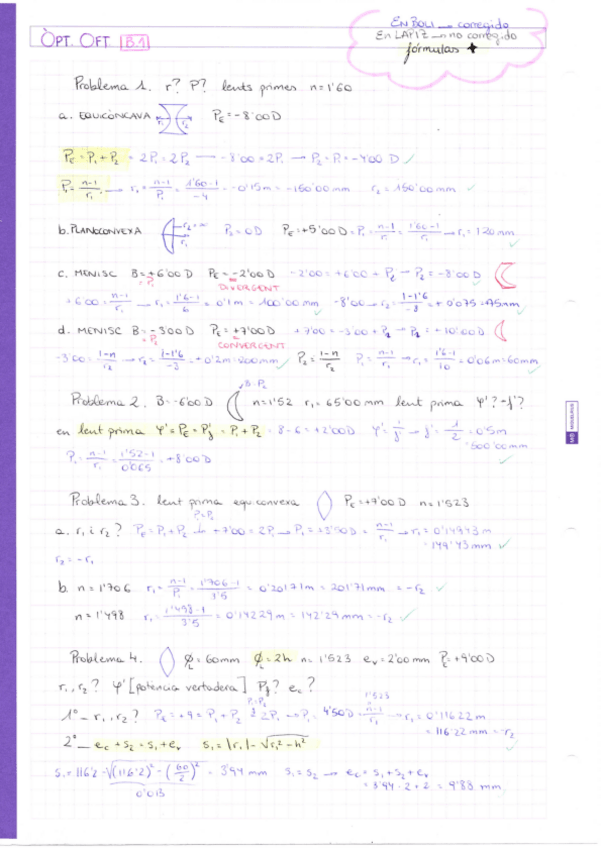 ÒPT. OFT B.1
EN BOLI → corregido
EN LÁPIZ → no corregido
fórmulas +
Problema 1. r? P? lents primes n=1'60
a. EQUICÒNCAVA r₁ r₂ P_E = -8'00 D
P_E = P₁ + P₂ = 2P₁ = 2P₂ → -8'00 = 2P₁ → P₂ = P₁ = -4'00 D ✓
P₁ = n-1/r₁ → r₁ = n-1/P₁ = 1'60-1/-4 = -0'15m = -150'00mm r₂ = 150'00mm ✓
b. PLANOCONVEXA r₂=∞ r₁ P₂ = 0D P_E = +5'00D = P₁ = n-1/r₁ = 1'60-1/r₁ → r₁ = 120mm ✓
c. MENISC B = +6'00D P_E = -2'00D -2'00 = +6'00 + P₂ → P₂ = -8'00D
= P₁ DIVERGENT
+6'00 = n-1/r₁ → r₁ = 1'6-1/6 = 0'1m = 100'00mm ✓ -8'00 → r₂ = 1-1'6/-8 = +0'075 = 75mm ✓
d. MENISC B = -3'00D P_E = +7'00D +7'00 = -3'00 + P₁ → P₁ = +10'00D
= P₂ CONVERGENT
-3'00 = 1-n/r₂ → r₂ = 1-1'6/-3 = +0'2m = 200mm ✓ P₂ = 1-n/r₂ P₁ = n-1/r₁ → r₁ = 1'6-1/10 = 0'06m = 60mm ✓
B=P₂
Problema 2. B = -6'00D n = 1'52 r₁ = 65'00mm lent prima φ'? f'?
en lent prima φ' = P_E = P'f = P₁ + P₂ = 8-6 = +2'00D φ' = 1/f' → f' = 1/2 = 0'5m
= 500'00mm ✓
P₁ = n-1/r₁ = 1'52-1/0'065 = +8'00D
Problema 3. lent prima equiconvexa P_E = +7'00D n = 1'523
P₁=P₂
a. r₁ i r₂? P_E = P₁ + P₂ → +7'00 = 2P₁ → P₁ = +3'50D = n-1/r₁ → r₁ = 0'14943m
= 149'43mm ✓
r₂ = -r₁
b. n = 1'706 r₁ = n-1/P₁ = 1'706-1/3'5 = 0'20171m = 201'71mm = -r₂ ✓
n = 1'498 r₁ = 1'498-1/3'5 = 0'14229m = 142'29mm = -r₂ ✓
Problema 4. ϕ_L = 60mm ϕ_L = 2h n = 1'523 e_v = 2'00mm P_E = +9'00D
r₁, r₂? φ' [potencia vertadera] P'f? e_c?
1º → r₁, r₂? P_E = +9 = P₁ + P₂ P₁=P₂ 2P₁ → P₁ = 4'50D = 1'523 n-1/r₁ → r₁ = 0'11622m
= 116'22mm = -r₂ ✓
2º → e_c + s₂ = s₁ + e_v s₁ = |r₁| - √r₁² - h²
s₁ = 116'2 - √(116'2)² - (60/2)² = 3'94mm s₁ = s₂ → e_c = s₁ + s₂ + e_v
0'013 = 3'94 · 2 + 2 = 9'88mm
MIQUELRIUS